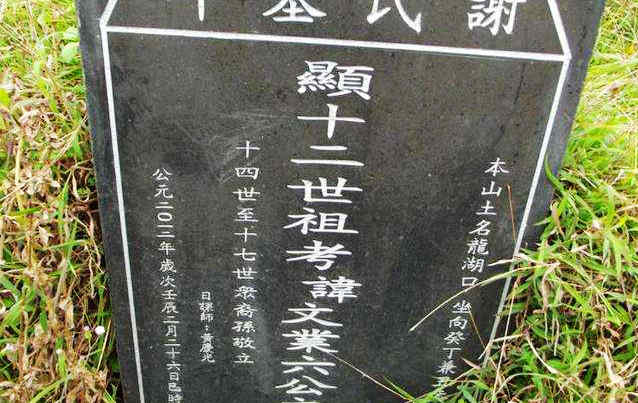 謝氏墓
本山土名龍湖口坐向癸丁兼丑
顯十二世祖考諱文業六公
十四世至十七世眾裔孫敬立
日課師：黃慶光
公元二〇一二年歲次壬辰二月二十六日巳時